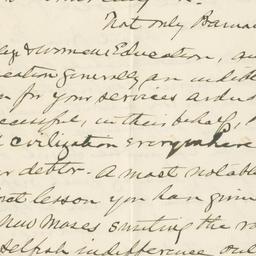 Not only Barna
& women Education, an
cation generally an indebt
n for your services ardu
cessful, in their behalf,
civilization everywhere
debtor. A most notable
lesson you have given
Moses smiting the ro
selfish indifference